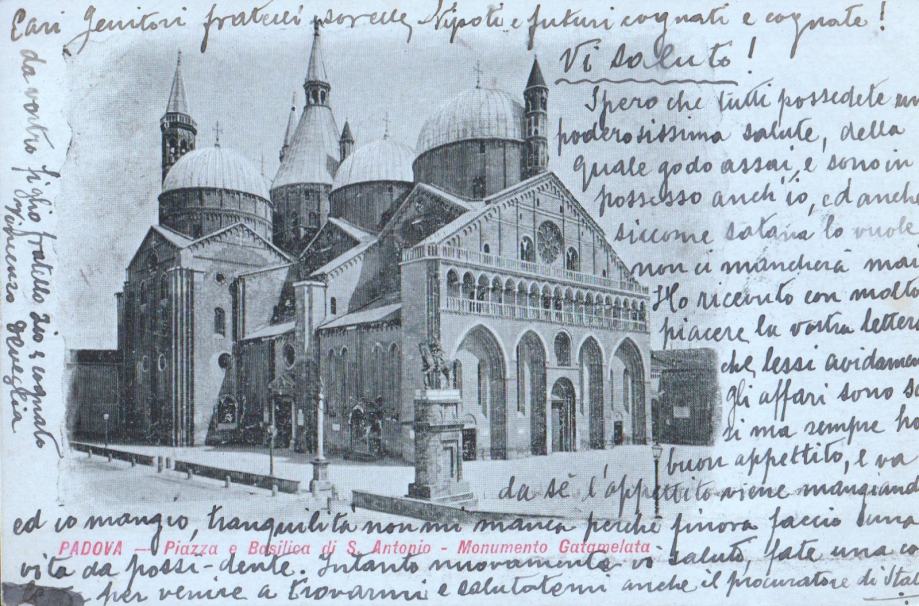 Cari Genitori fratelli, sorelle, Nipoti e futuri cognati e cognate!
Vi saluto!
Spero che tutti possedete un
poderosissima salute, della
quale godo assai, e sono in
possesso anch'io, ed anche
siccome satana lo vuole
non ci mancherà mai
Ho ricevuto con molto
piacere la vostra lettera
che, lessi avidamen
gli affari sono s
si ma sempre ho
buon appetito, e va
da sè l'appetito viene mangiand
ed io mangio, tranquilità non mi manca perchè finora faccio una
PADOVA — Piazza e Basilica di S. Antonio - Monumento Gatamelata
vita da possi-dente. Intanto nuovamente vi saluto, fate una co
per venire a trovarmi e salutatemi anche il procuratore di Stal
da vostro figlio fratello zio e cognato